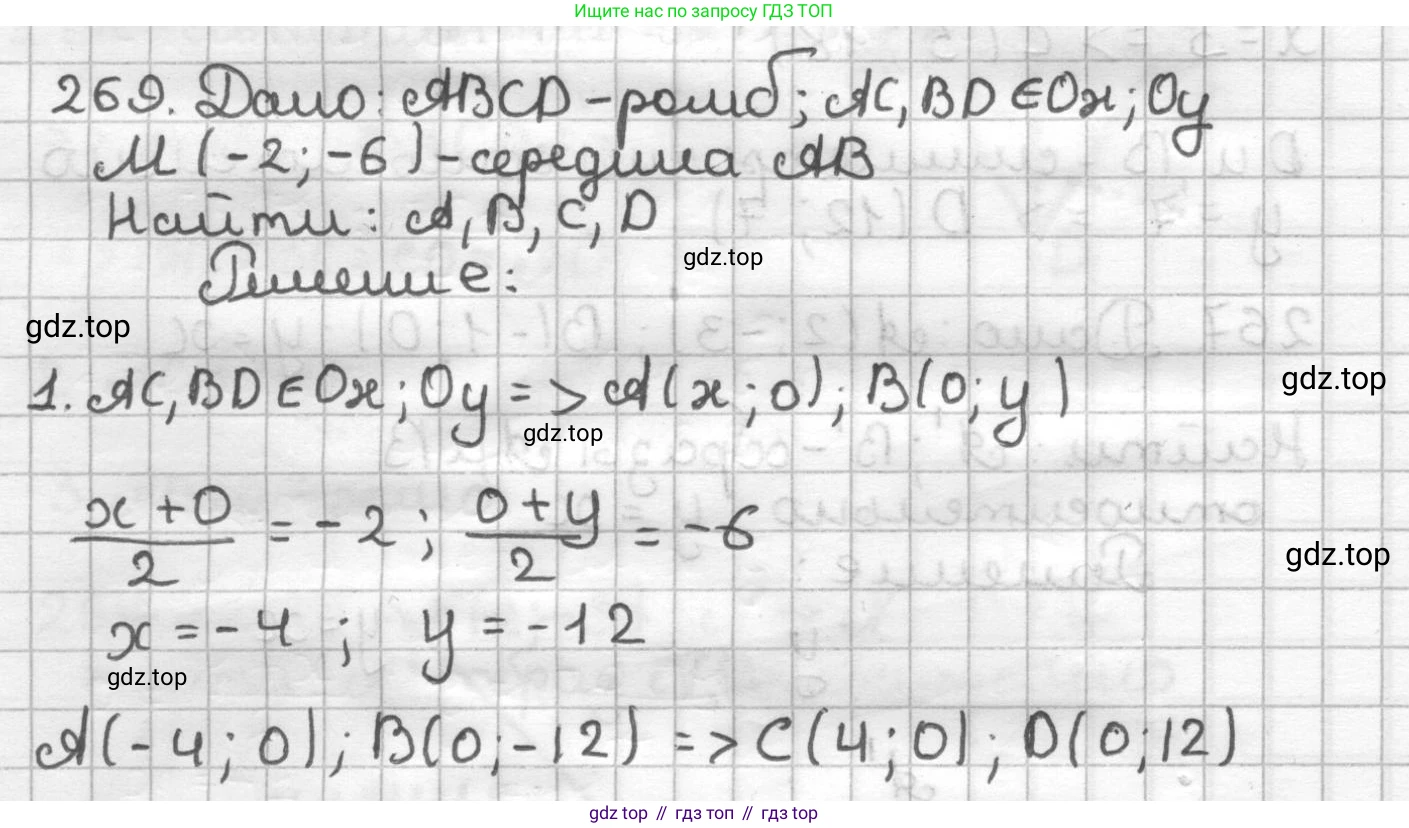 Ищите нас по запросу ГДЗ ТОП
269. Дано: ABCD - ромб; AC, BD ∈ Ox; Oy
M (-2; -6) - середина AB
Найти: A, B, C, D
gdz.top
Решение:
gdz.top
1. AC, BD ∈ Ox; Oy => A(x; 0); B(0; y)
gdz.top
gdz.top
(x + 0)/2 = -2; (0 + y)/2 = -6
gdz.top
x = -4; y = -12
gdz.top
A(-4; 0); B(0; -12) => C(4; 0); D(0; 12)
gdz top // гдз топ // gdz top